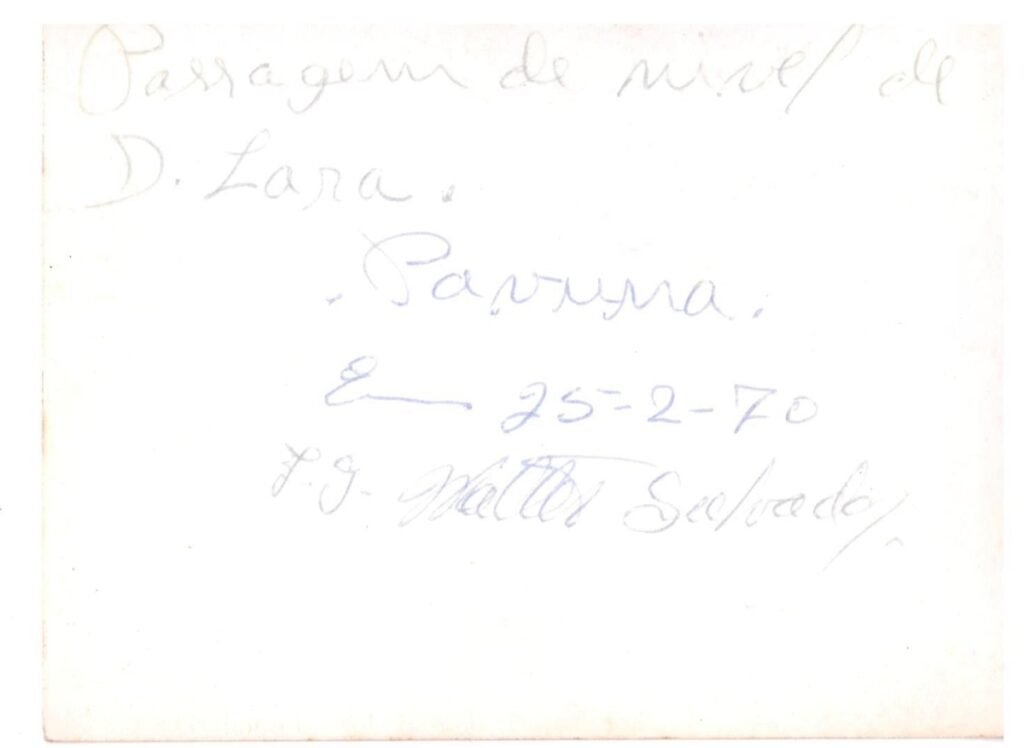 Passagem de nivel de
D. Lara.
. Pavuna.
Em 25-2-70
F.G. Walter Salvador